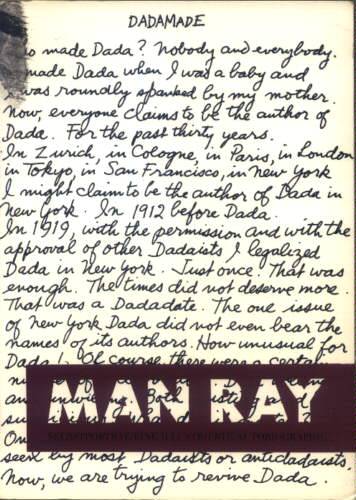 DADAMADE
o made Dada? Nobody and everybody.
made Dada when I was a baby and
was roundly spanked by my mother.
Now, everyone claims to be the author of
Dada. For the past thirty years.
In Zurich, in Cologne, in Paris, in London
in Tokyo, in San Francisco, in New York
I might claim to be the author of Dada in
New York. In 1912 before Dada.
In 1919, with the permission and with the
approval of other Dadaists I legalized
Dada in New York. Just once. That was
enough. The times did not deserve more.
That was a Dadadate. The one issue
of New York Dada did not even bear the
names of its authors. How unusual for
Dada! Of course there were a certain
MAN RAY
seen by most Dadaists or antidadaists.
Now, we are trying to revive Dada.